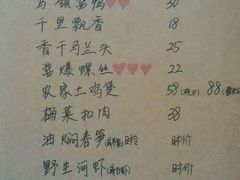 千里飘香 18
香干马兰头 25
酱爆螺丝♥♥♥ 22
农家土鸡煲 58 88
梅菜扣肉 38
油焖春笋 时价
野生河虾 时价